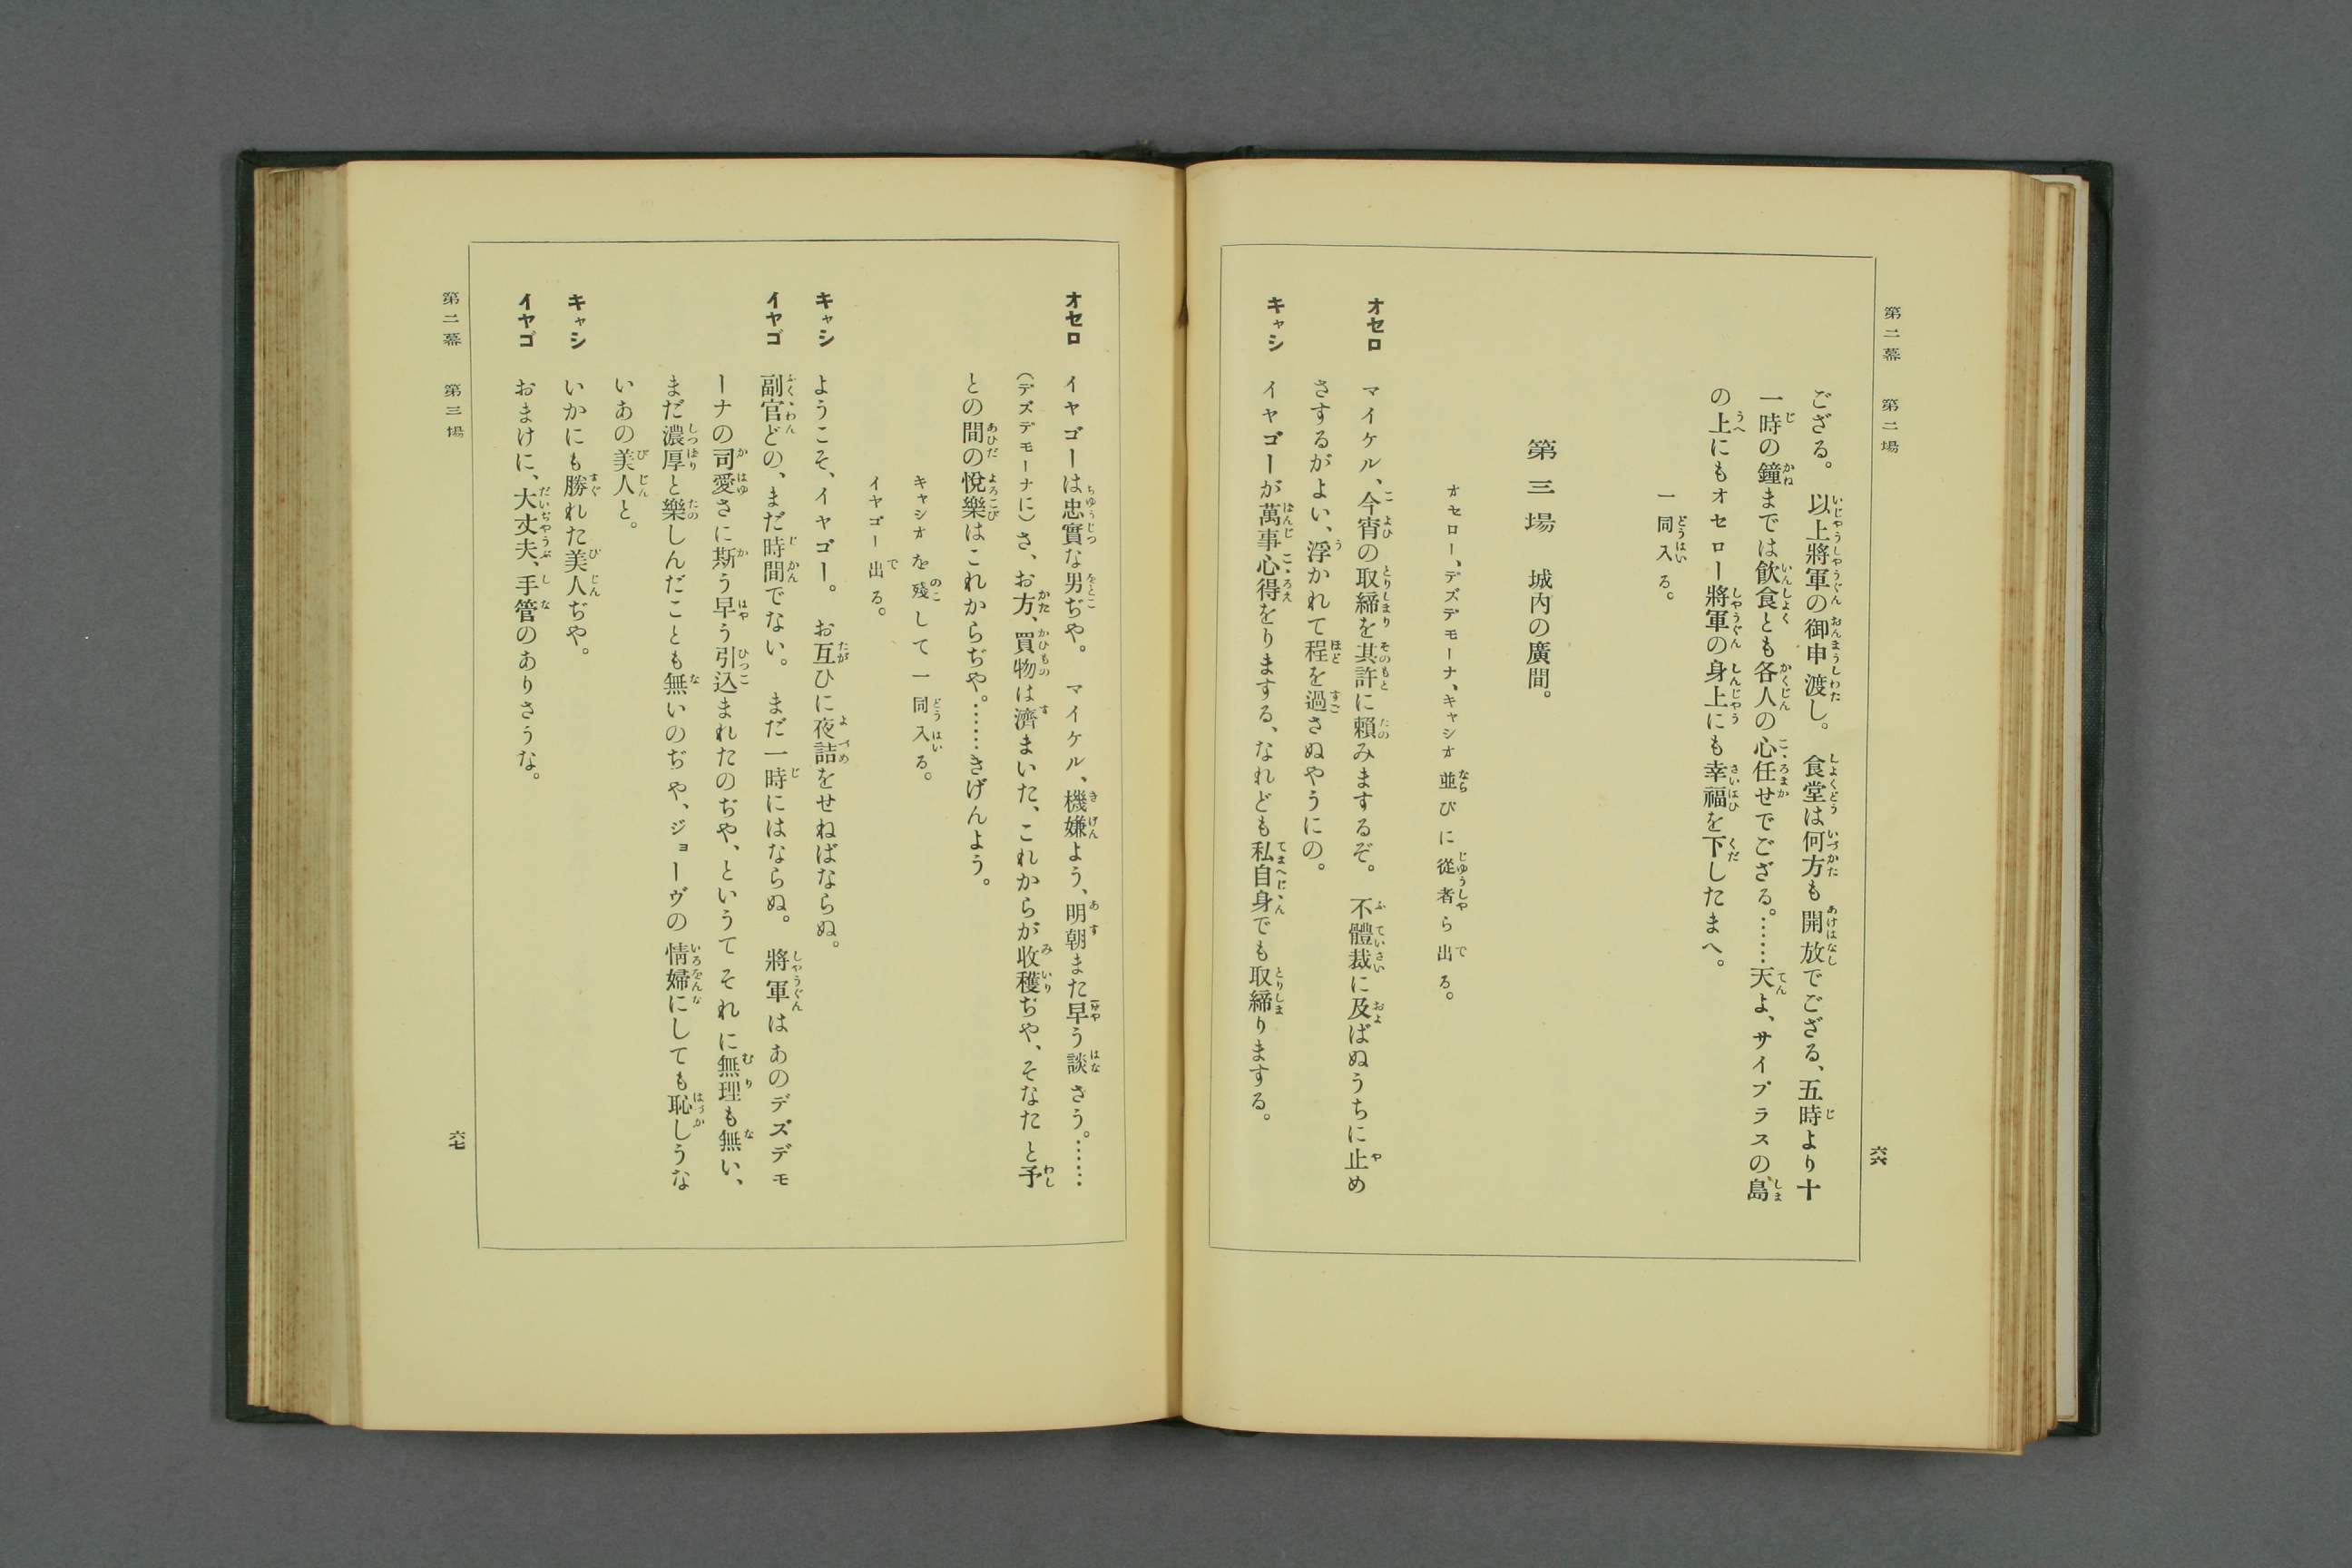 第二幕　第二場
ござる。以上將軍の御申渡し。食堂は何方も開放でござる、五時より十
一時の鐘までは飮食とも各人の心任せでござる。……天よ、サイプラスの島
の上にもオセロー將軍の身上にも幸福を下したまへ。
一同入る。
第三場　城内の廣間。
オセロー、デズデモーナ、キャシオ並びに從者ら出る。
オセロ　マイケル、今宵の取締を其許に賴みまするぞ。不體裁に及ばぬうちに止め
さするがよい、浮かれて程を過さぬやうにの。
キャシ　イヤゴーが萬事心得をりまする、なれども私自身でも取締りまする。
六六
オセロ　イヤゴーは忠實な男ぢや。マイケル、機嫌よう、明朝また早う談さう。……
（デズデモーナに）さ、お方、買物は濟まいた、これからが收穫ぢや、そなたと予
との間の悅樂はこれからぢや。……きげんよう。
キャシオを殘して一同入る。
イヤゴー出る。
キャシ　ようこそ、イヤゴー。お互ひに夜詰をせねばならぬ。
イヤゴ　副官どの、まだ時間でない。まだ一時にはならぬ。將軍はあのデズデモ
ーナの司愛さに斯う早う引込まれたのぢや、というてそれに無理も無い、
まだ濃厚と樂しんだことも無いのぢや、ジョーヴの情婦にしても恥しうな
いあの美人と。
キャシ　いかにも勝れた美人ぢや。
イヤゴ　おまけに、大丈夫、手管のありさうな。
第二幕　第三場
六七